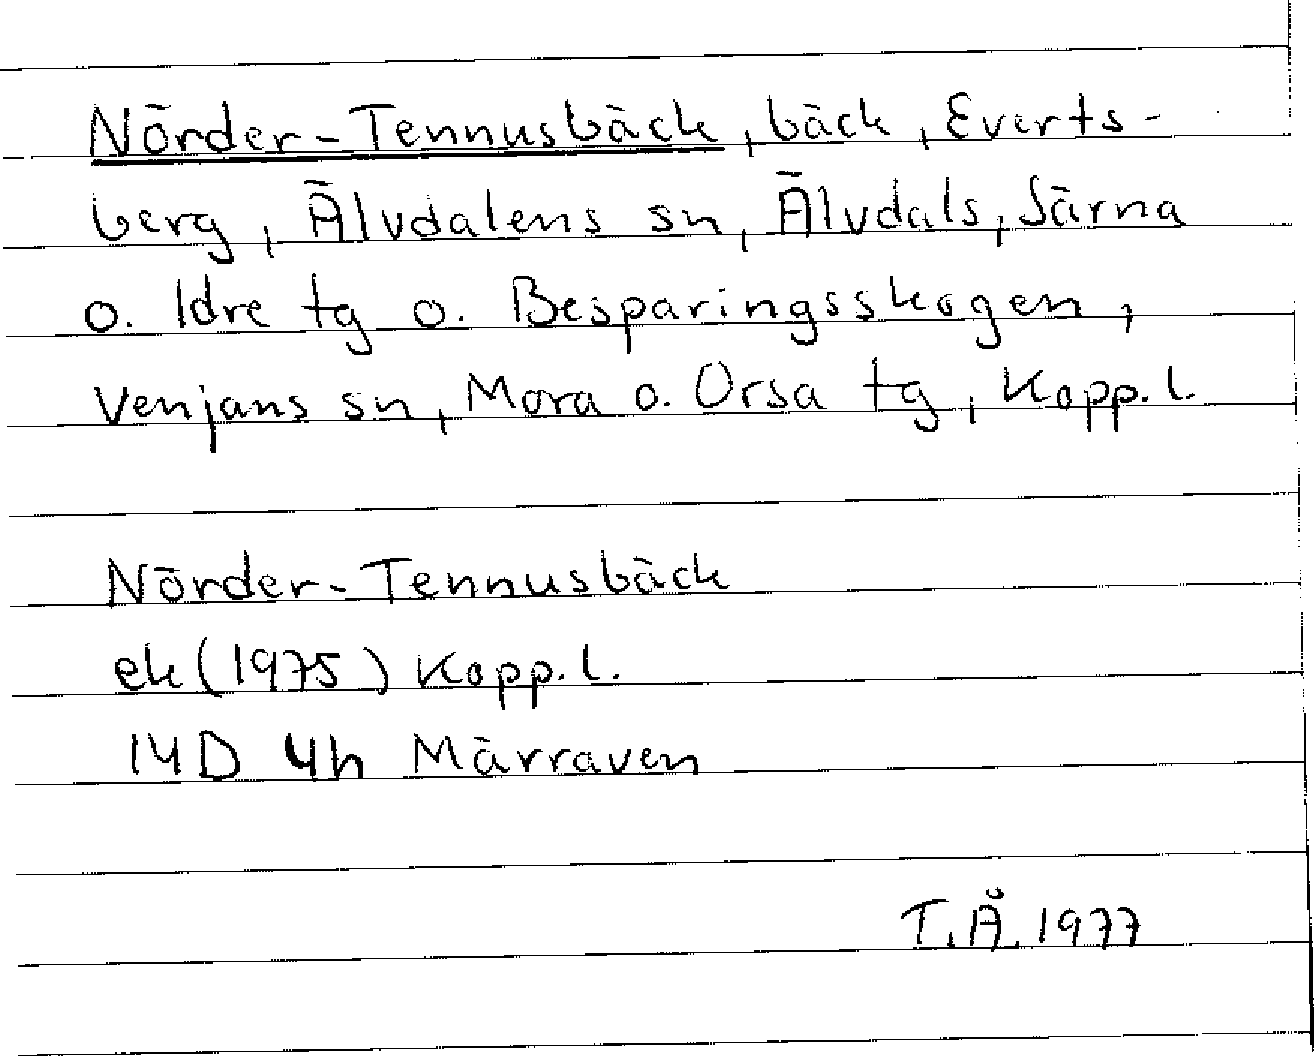 Nörder-Tennusbäck, bäck, Everts-
berg, Älvdalens sn, Älvdals, Särna
o. Idre tg o. Besparingsskogen,
Venjans sn, Mora o. Orsa tg, Kopp.l.
Nörder-Tennusbäck
ek (1975) Kopp.l.
14D 4h Märraven
T.Å. 1977